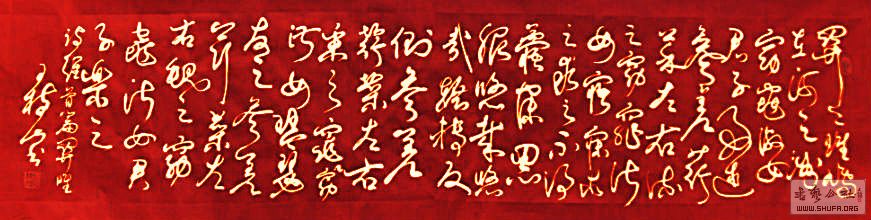 關關雎鳩
在河之洲
窈窕淑女
君子好逑
參差荇
菜左右流
之窈窕淑
女寤寐求
之求之不得
寤寐思
服悠哉悠
哉輾轉反
側參差
荇菜左右
采之窈窕
淑女琴瑟
友之參差
荇菜左
右芼之窈
窕淑女君
子樂之
詩經首篇關雎
WWW.SHUFA.ORG